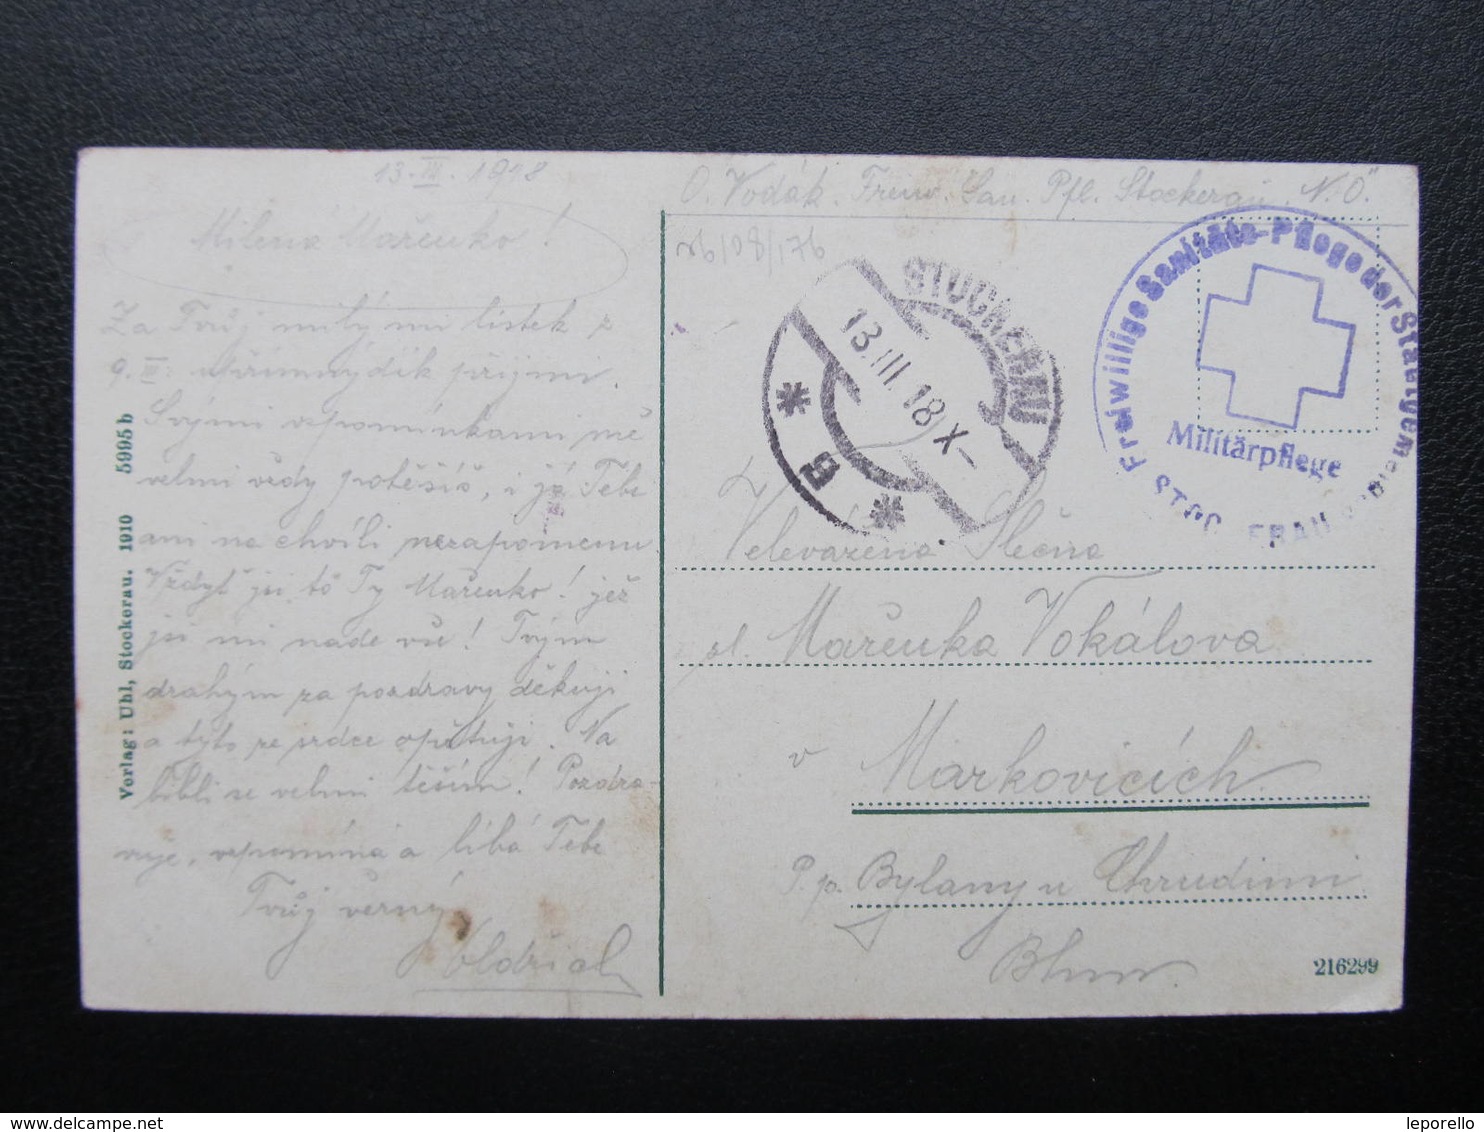 13. III. 1918
Milena Mařenko!
Za Tvůj milý mi lístek z
9. III. upřímný dík přijmi.
Svými vzpomínkami mě
velmi vždy potěšíš, i já Tebe
ani na chvíli nezapomenu
Vždyť jsi to Ty Mařenko! jež
jsi mi nade vše! Tvým
drahým za pozdravy děkuji
a tyto ze srdce opětuji. Na
bibli se velmi těším! Pozdra-
vuje, vzpomíná a líbá Tebe
Tvůj věrný
Oldřich
Verlag: Uhl, Stockerau. 1910 5995 b
O. Vodák. Freiw. San. Pfl. Stockerau "N.Ö."
26/08/176
STOCKERAU
13. III. 18 X-
* b *
Freiwillige Sanitäts-Pflege der Stadtgemeinde
STOCKERAU
Militärpflege
Velevážená Slečna
sl. Mařenka Vokálova
v Markovicích
P. p. Bylany u Chrudimi
Böhm.
216299
leporello